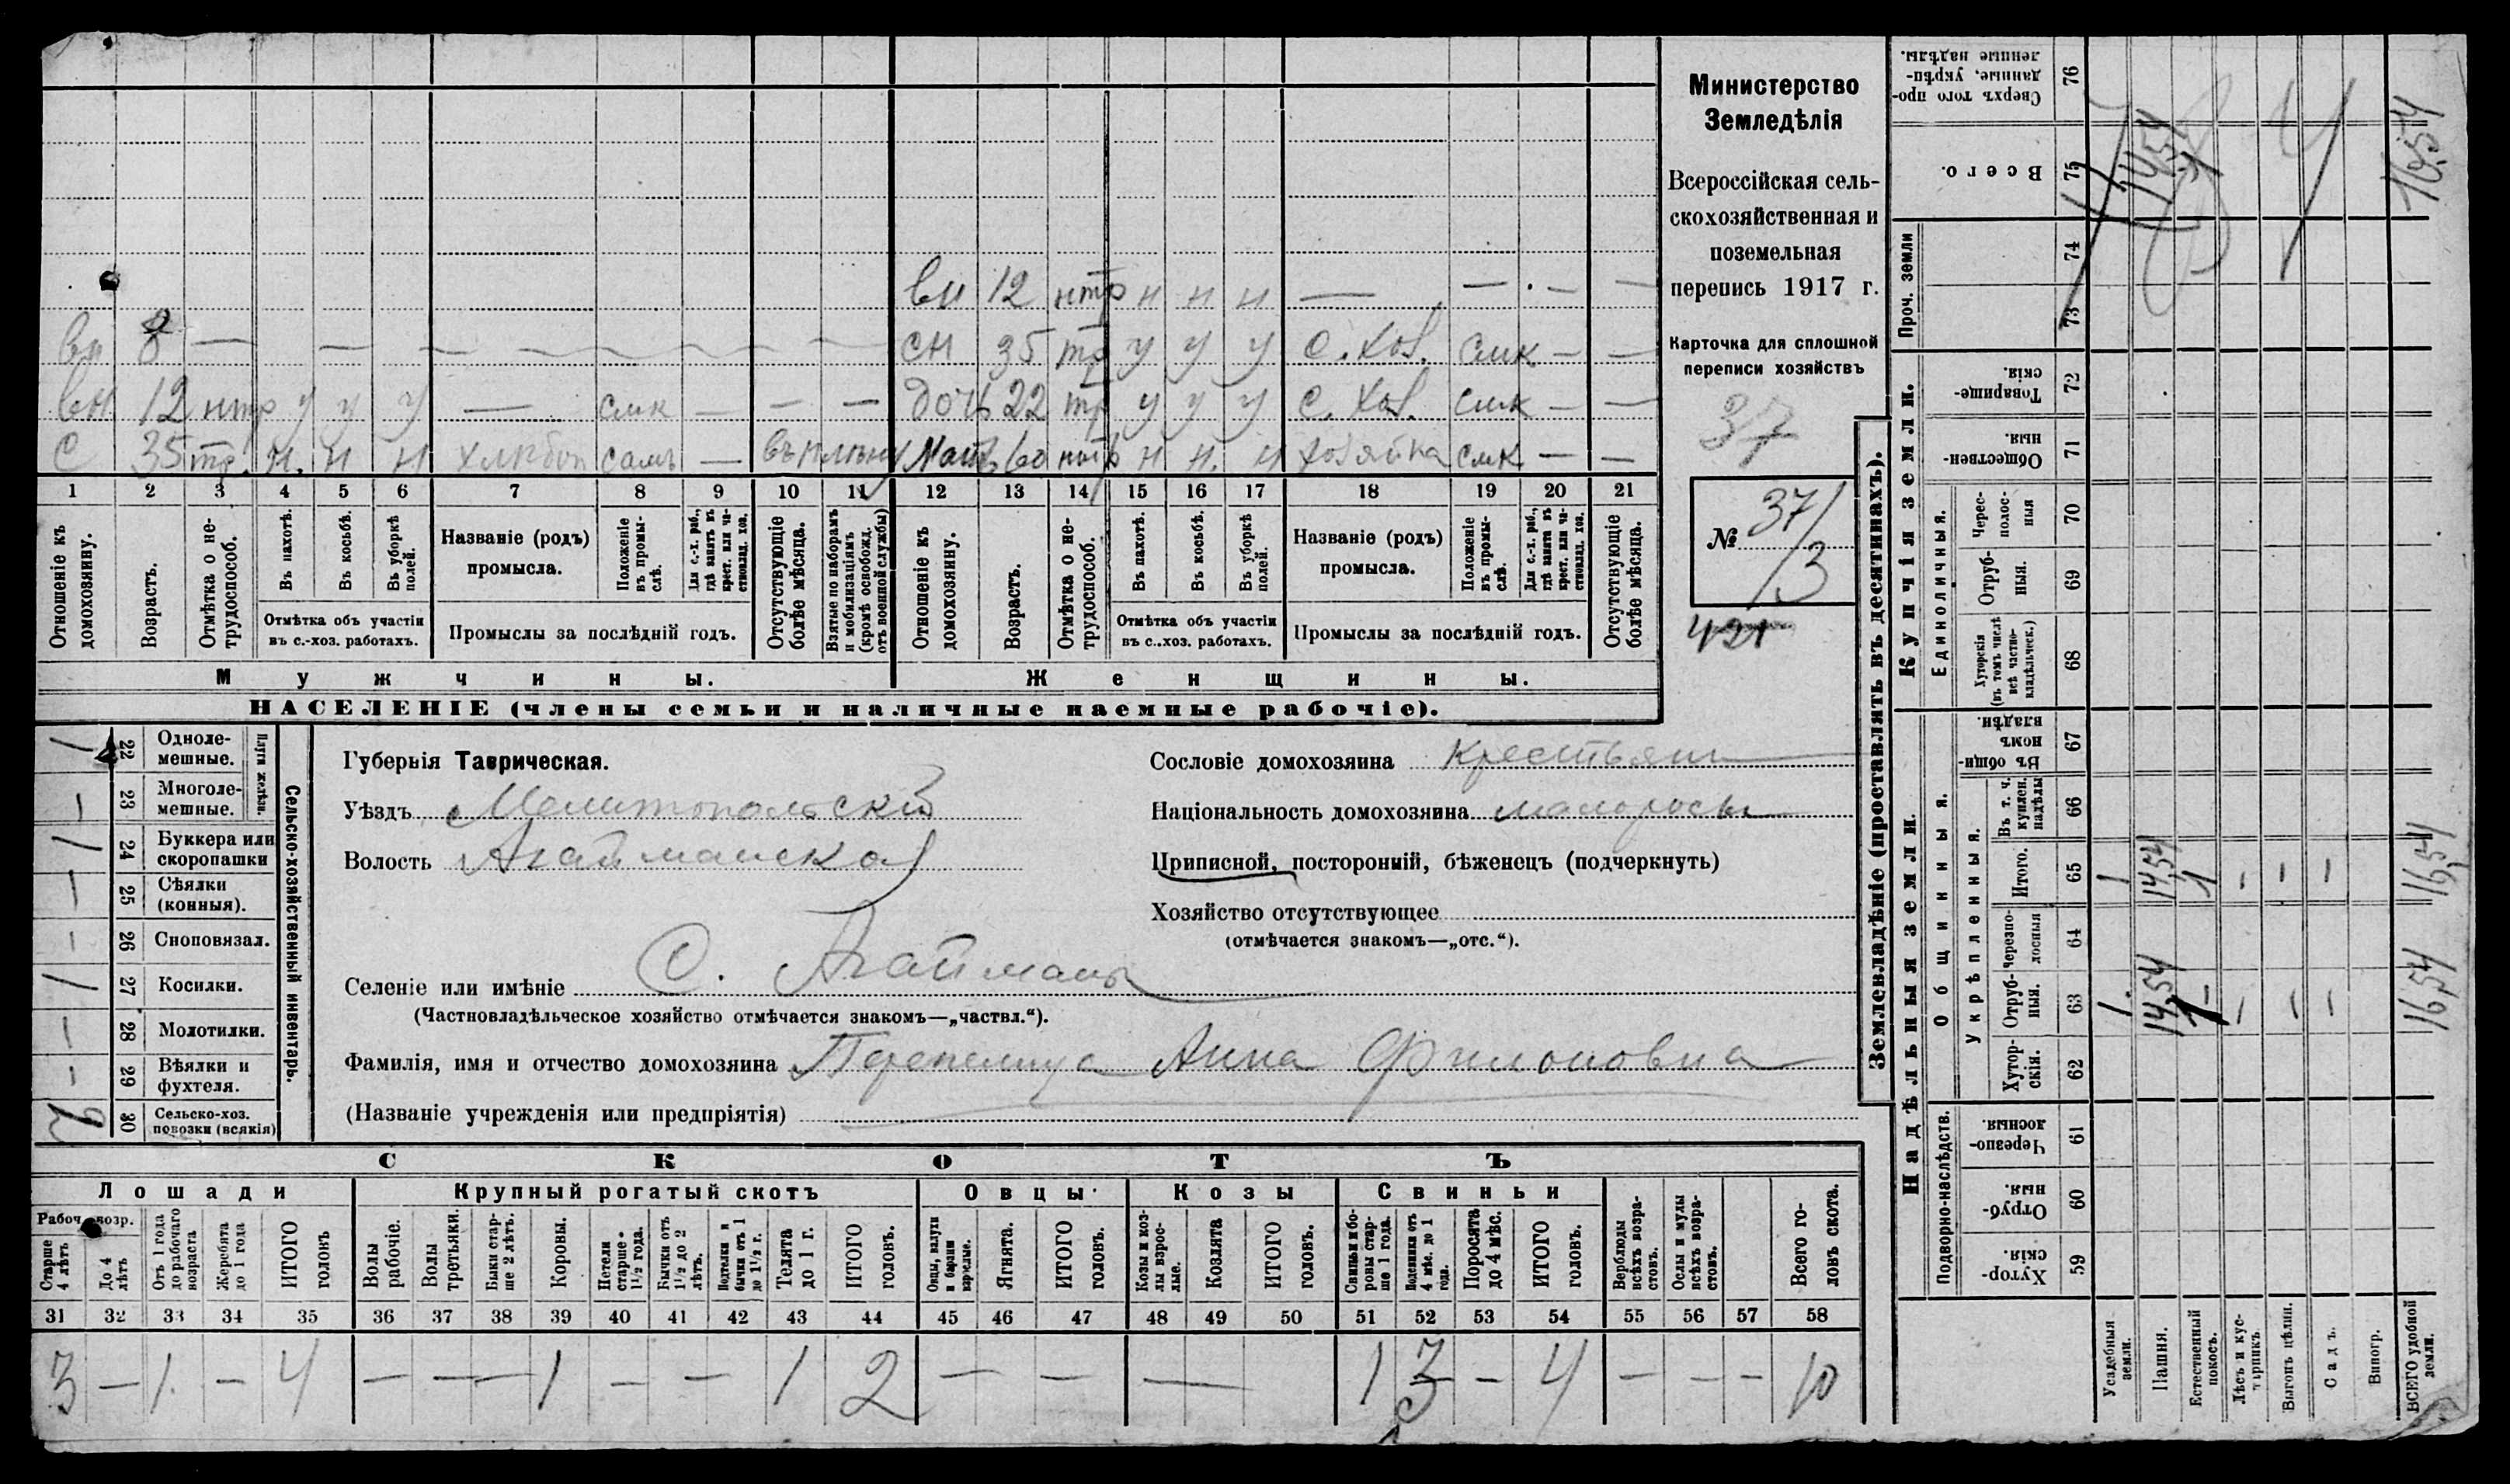 вн 12 нтр н н н — — · — —
вн 8 — — — — — — —
сн 35 тр у у у с. хоз. смк — —
вн 12 нтр у у у — смк — — —
дочь 22 тр у у у с. хоз. смк — —
с 35 тр. н. н н самъ — въ плѣну
Мать 60 нтр н н. н хозяйка смк — —
1 2 3 4 5 6 7 8 9 10 11 12 13 14 15 16 17 18 19 20 21
Отношеніе къ домохозяину.
Возрастъ.
Отмѣтка о нетрудоспособ.
Въ пахотѣ.
Въ косьбѣ.
Въ уборкѣ полей.
Отмѣтка объ участіи
въ с.-хоз. работахъ.
Названіе (родъ)
промысла.
Положеніе въ промыслѣ.
Для с.-х. раб., гдѣ занятъ въ крест. или частновлад. хоз.
Промыслы за послѣдній годъ.
Отсутствующіе болѣе мѣсяца.
Взятые по наборамъ и мобилизаціямъ (кромѣ освобожд. отъ военной службы)
Отношеніе къ домохозяину.
Возрастъ.
Отмѣтка о нетрудоспособ.
Въ пахотѣ.
Въ косьбѣ.
Въ уборкѣ полей.
Отмѣтка объ участіи
въ с.-хоз. работахъ.
Названіе (родъ)
промысла.
Положеніе въ промыслѣ.
Для с.-х. раб., гдѣ занята въ крест. или частновлад. хоз.
Промыслы за послѣдній годъ.
Отсутствующіе болѣе мѣсяца.
Мужчины.
Женщины.
НАСЕЛЕНІЕ (члены семьи и наличные наемные рабочіе).
Министерство
Земледѣлія
Всероссійская сель-
скохозяйственная и
поземельная
перепись 1917 г.
Карточка для сплошной
переписи хозяйствъ
37
№ 37/3
421
Сельско-хозяйственный инвентарь.
Плуги желѣзн.
1 22 Однолемешные.
— 23 Многолемешные.
1 24 Буккера или скоропашки
— 25 Сѣялки (конныя).
— 26 Сноповязал.
1 27 Косилки.
— 28 Молотилки.
— 29 Вѣялки и фухтеля.
30 Сельско-хоз. повозки (всякія)
Губернія Таврическая.
Уѣздъ Мелитопольскій
Волость Агайманская
Сословіе домохозяина Крестьян
Національность домохозяина малоросы
Приписной, посторонній, бѣженецъ (подчеркнуть)
Хозяйство отсутствующее
(отмѣчается знакомъ—„отс.“).
Селеніе или имѣніе С. Агайманы
(Частновладѣльческое хозяйство отмѣчается знакомъ—„частвл.“).
Фамилія, имя и отчество домохозяина Перепелица Анна Филоновна
(Названіе учрежденія или предпріятія)
СКОТЪ
Лошади Крупный рогатый скотъ Овцы Козы Свиньи
Рабоч. возр.
Старше 4 лѣтъ
До 4 лѣтъ
Отъ 1 года до рабочаго возраста
Жеребята до 1 года
ИТОГО головъ
Волы рабочіе.
Волы третьяки.
Быки старше 2 лѣтъ.
Коровы.
Нетели старше 1½ года.
Бычки отъ 1½ до 2 лѣтъ.
Подтелки и бычки отъ 1 до 1½ г.
Телята до 1 г.
ИТОГО головъ.
Овцы, валухи и бараны взрослые.
Ягнята.
ИТОГО головъ.
Козы и козлы взрослые.
Козлята
ИТОГО головъ.
Свиньи и боровы старше 1 года.
Подсвинки отъ 4 мѣс. до 1 года.
Поросята до 4 мѣс.
ИТОГО головъ.
Верблюды всѣхъ возрастовъ.
Ослы и мулы всѣхъ возрастовъ.
Всего головъ скота.
31 32 33 34 35 36 37 38 39 40 41 42 43 44 45 46 47 48 49 50 51 52 53 54 55 56 57 58
3 — 1 — 4 — — — 1 — — 1 2 — — — 1 3 — 4 — — — 10
Землевладѣніе (проставлять въ десятинахъ).
Купчія земли.
Надѣльныя земли.
Сверхъ того проданные, укрѣпленные надѣлы. 76
Всего. 75 1 14,54 16,54
Проч. земли 74 73
Товарищескія. 72
Общественныя. 71
Единоличныя.
Чересполосныя 70
Отрубныя. 69
Хуторскія (въ томъ числѣ всѣ частновладѣльческ.) 68
Въ общинномъ владѣн. 67
Общинныя.
Укрѣпленныя.
Въ т. ч. куплен. надѣлы 66
Итого. 65 1 14,54 1 — — — 16,54
Черезполосныя 64
Отрубныя. 63 1. 14,54 1 — — — 16,54
Хуторскія. 62
Подворно-наслѣдств.
Черезполосныя. 61
Отрубныя. 60
Хуторскія. 59
Усадебныя земли.
Пашня.
Естественный покосъ.
Лѣсъ и кустарникъ.
Выгонъ цѣлин.
Садъ.
Виногр.
ВСЕГО удобной земли.